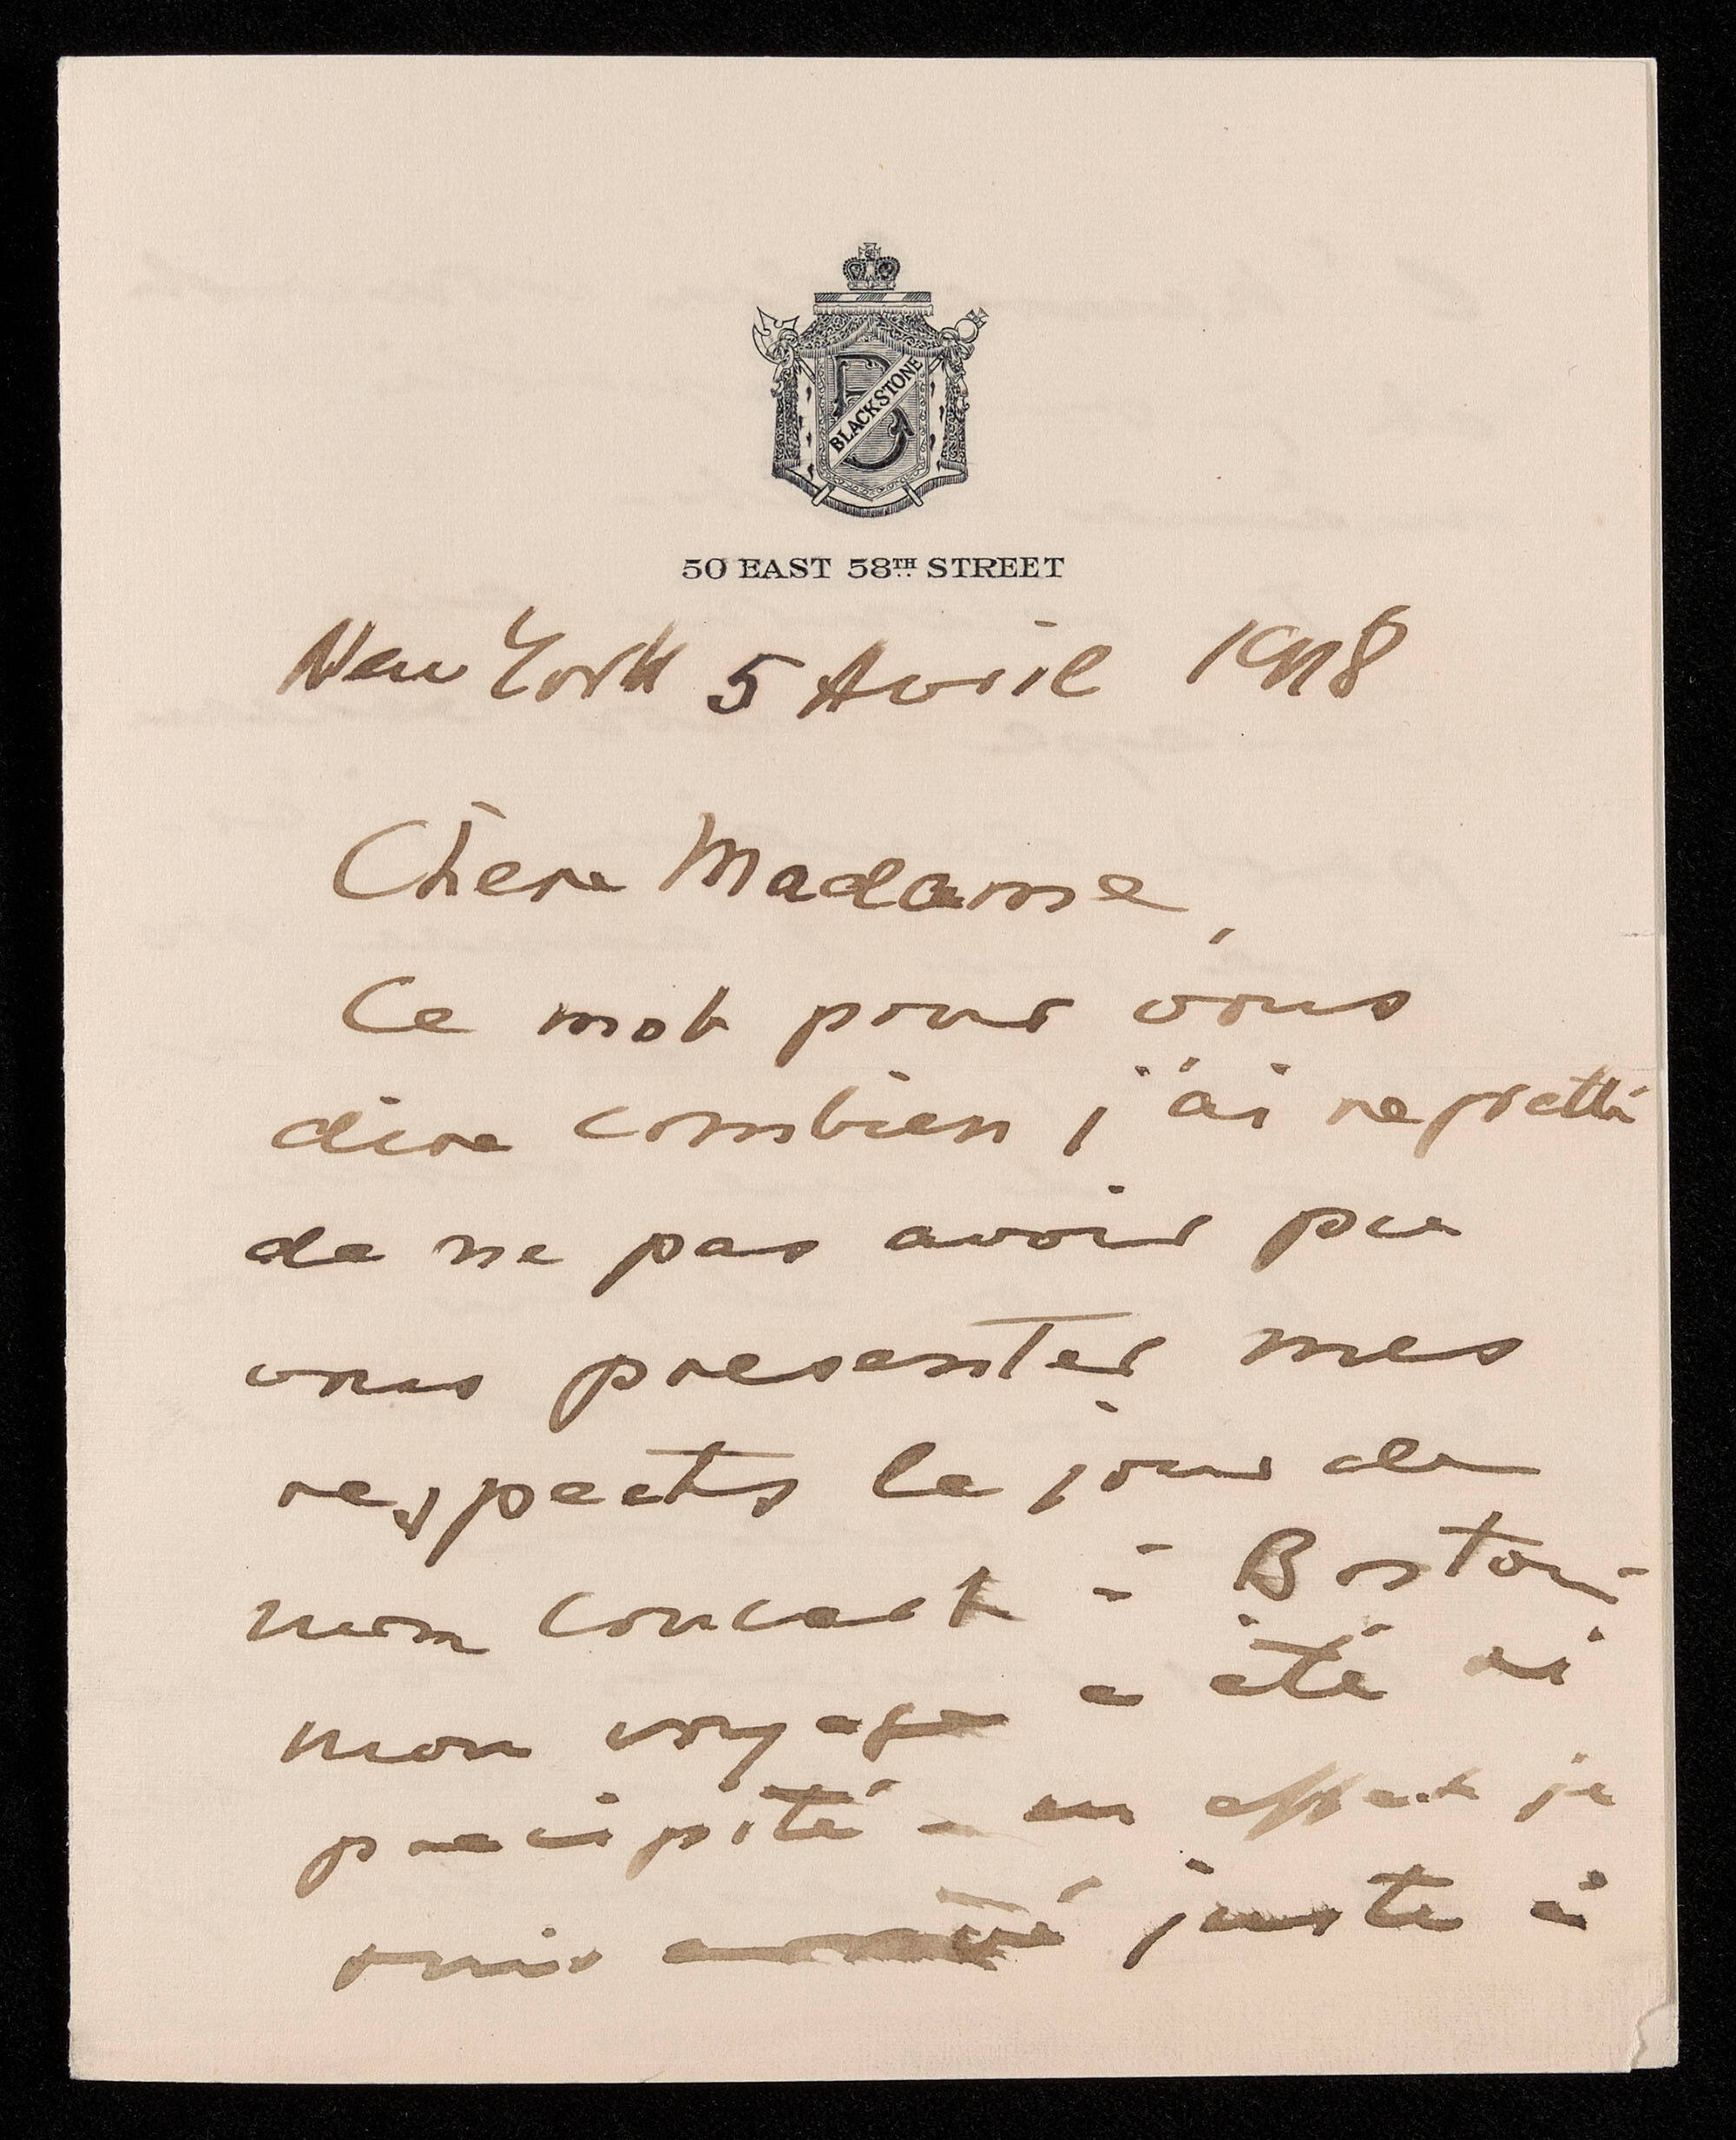 B
BLACKSTONE
50 EAST 58TH STREET
New York 5 Avril 1918
Chere Madame,
Ce mot pour vous
dire combien j'ai regretté
de ne pas avoir pu
vous presenter mes
respects le jour de
mon concert à Boston -
mon voyage a été si
precipité - en effet je
suis arrivé juste à